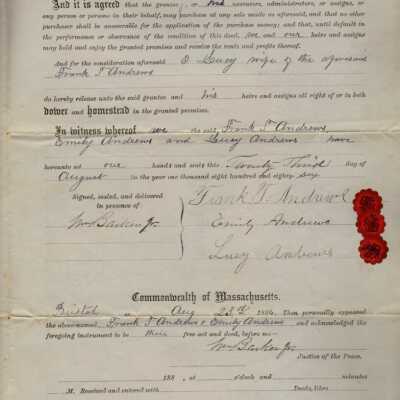 And it is agreed that the grantee, or his executors, administrators, or assigns, or
any person or persons in their behalf, may purchase at any sale made as aforesaid, and that no other
purchaser shall be answerable for the application of the purchase money; and that, until default in
the performance or observance of the condition of this deed, we and our heirs and assigns
may hold and enjoy the granted premises and receive the rents and profits thereof.
And for the consideration aforesaid I Lucy wife of the aforesaid
Frank T Andrews
do hereby release unto the said grantee and his heirs and assigns all right of or to both
dower and homestead in the granted premises.
In witness whereof we the said Frank T Andrews
Emily Andrews and Lucy Andrews have
hereunto set our hands and seals this Twenty Third day of
August in the year one thousand eight hundred and eighty six
Signed, sealed, and delivered
in presence of
Wm Barker Jr.
Frank T. Andrews
Emily Andrews
Lucy Andrews
Commonwealth of Massachusetts.
Bristol Aug 23rd 1886. Then personally appeared
the abovenamed Frank T Andrews & Emily Andrews and acknowledged the
foregoing instrument to be their free act and deed, before me—
Wm Barker Jr.
Justice of the Peace.
188 , at o'clock and minutes
M. Received and entered with Deeds, libro